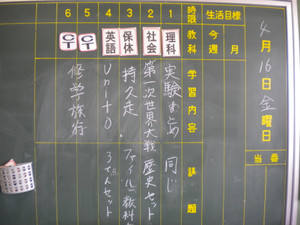 4月16日金曜日
当番
生活目標
今週
今月
時限 教科 学習内容 課題
1 理科 実験まとめ 同じ
2 社会 第一次世界大戦 歴史セット
3 保体 持久走
4 英語 Unit0
5 CT
6 CT 修学旅行